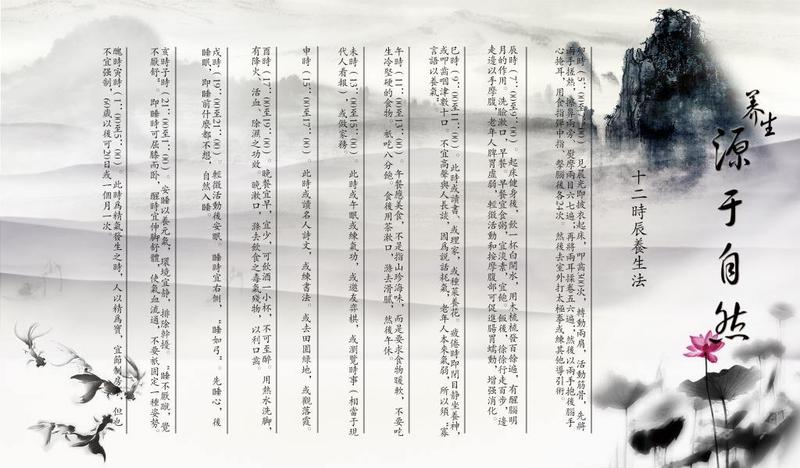 养生
源于自然
十二時辰養生法
卯時(5：00至7：00)。見晨光即披衣起床，叩齒300次，轉動兩肩，活動筋骨，先將
兩手搓熱，擦鼻兩旁，熨摩兩目六七遍；再將兩耳揉卷五六遍；然後以兩手抱後腦，手
心掩耳，用食指彈中指，擊腦後各24次。然後去室外打太極拳或練其他導引術。
辰時(7：00至9：00)。起床健身後，飲一杯白開水，用木梳梳發百餘遍，有醒腦明
目的作用。洗臉漱口，早餐。早餐宜食粥，宜淡素，宜飽。飯後，徐徐行走百步，邊
走邊以手摩腹，老年人脾胃虛弱，輕微活動和按摩腹部可促進腸胃蠕動，增强消化。
巳時(9：00至11：00)。此時或讀書，或理家，或種菜養花。疲倦時即閉目靜坐養神，
或叩齒咽津數十口。不宜高聲與人長談，因爲説話耗氣，老年人本來氣弱，所以須“寡
言語以養氣”。
午時(11：00至13：00)。午餐應美食，不是指山珍海味，而是要求食物暖軟，不要吃
生冷堅硬的食物。衹吃八分飽。食後用茶漱口，滌去滑膩，然後午休。
未時(13：00至15：00)。此時或午眠或練氣功，或邀友弈棋，或瀏覽時事（相當于現
代人看報），或做家務。
申時(15：00至17：00)。此時或讀名人詩文，或練書法。或去田園緑地，或觀落霞。
酉時(17：00至19：00)。晚餐宜早，宜少，可飲酒一小杯，不可至醉。用熱水洗脚，
有降火、活血、除濕之功效。晚漱口，滌去飲食之毒氣殘物，以利口齒。
戌時(19：00至21：00)。輕微活動後安眠。睡時宜右側，“睡如弓”。先睡心，後
睡眼，即睡前什麽都不想，自然入睡。
亥時子時(21：00至1：00)。安睡以養元氣，環境宜静，排除幹擾。“睡不厭踡，覺
不厭舒”。即睡時可屈膝而卧，醒時宜伸脚舒體，使氣血流通，不要衹固定一種姿勢。
醜時寅時(1：00至5：00)。此時爲精氣發生之時，人以精爲寶，宜節制房事，但也
不宜强制，60歲以後可20日或一個月一次。